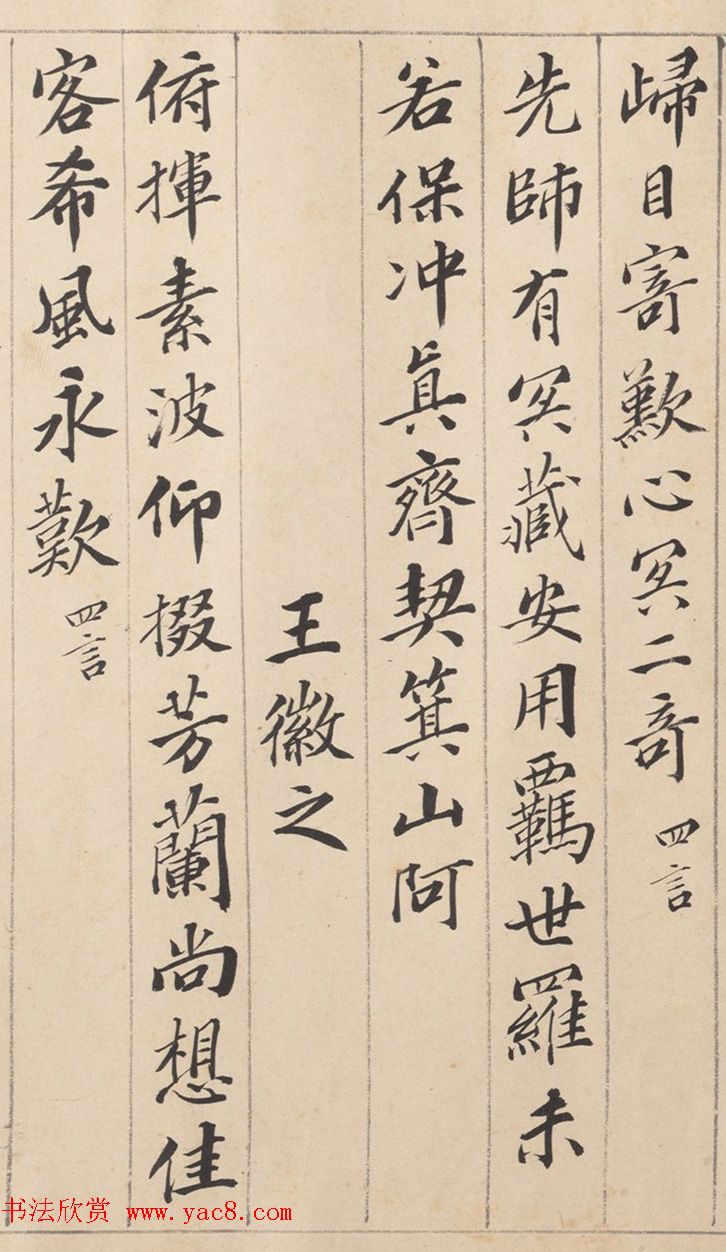 歸目寄歎心冥二奇 四言
先師有冥藏安用羈世羅未
若保冲眞齊契箕山阿
王徽之
俯揮素波仰掇芳蘭尚想佳
客希風永歎 四言
书法欣赏 www.yac8.com